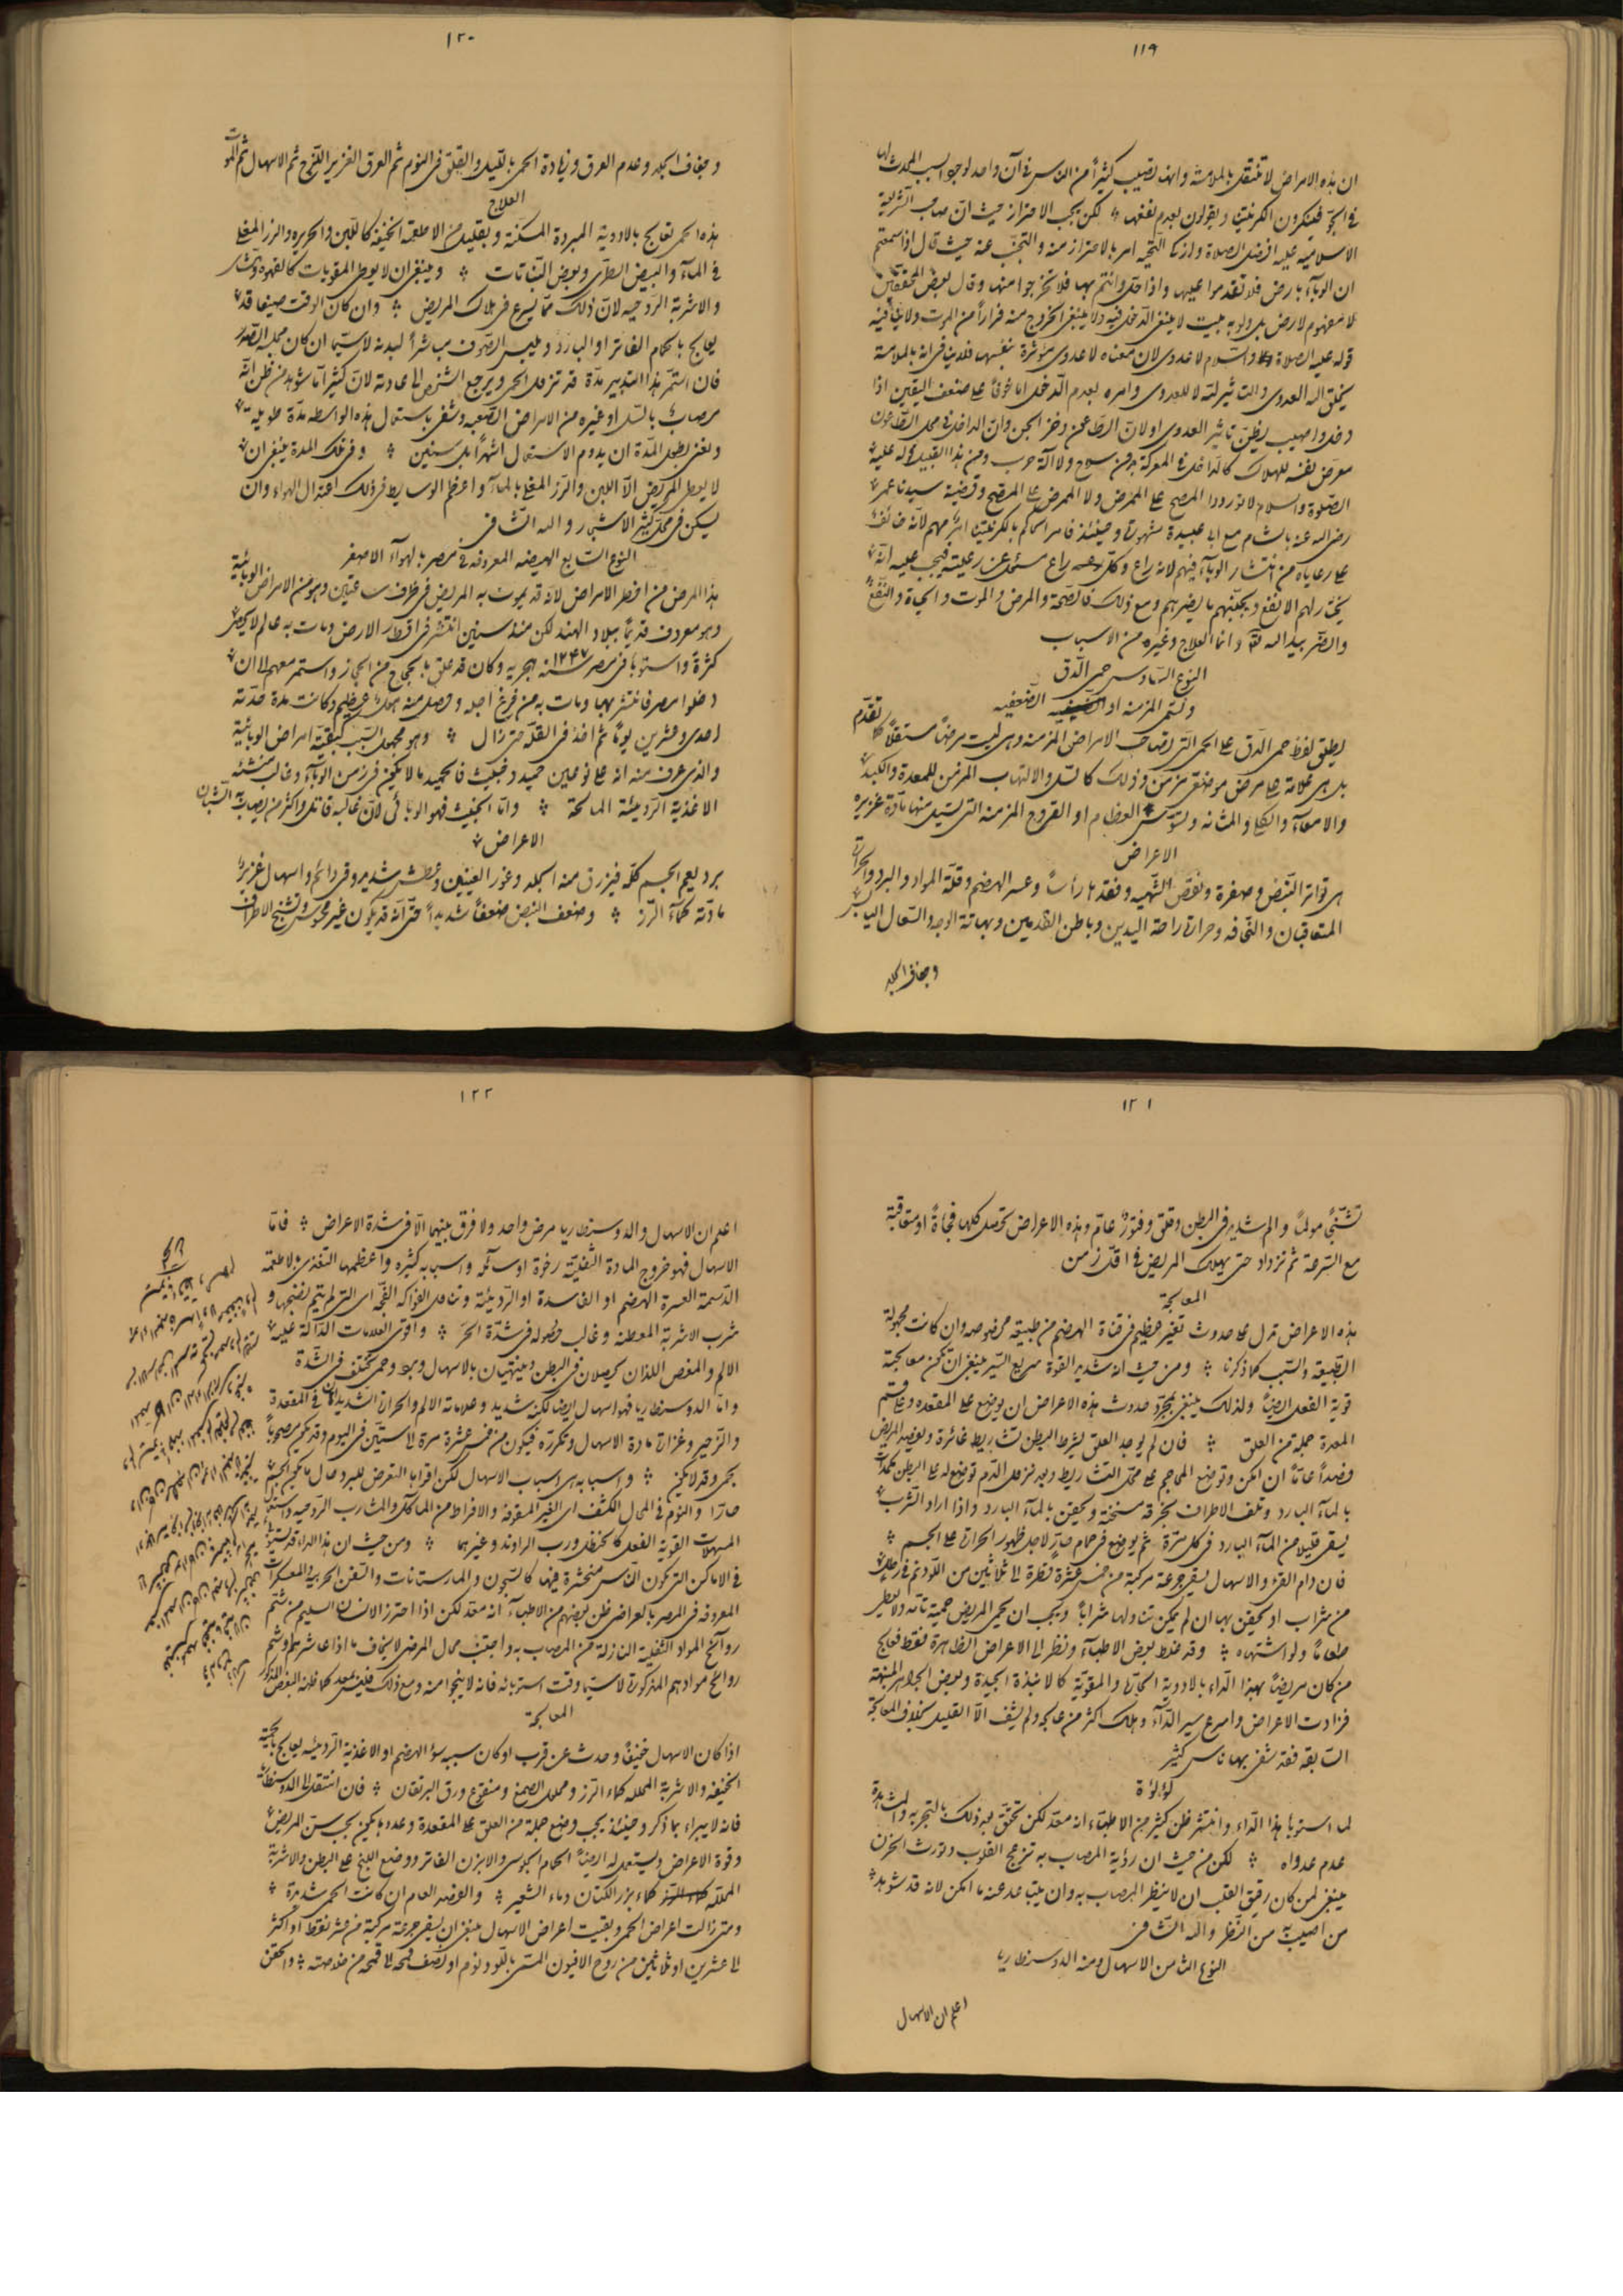 ١١٩
ان هذه الامراض لا تنتقل بالملامسة وانها تصيب كثيراً من الناس فى آن واحد لوجود السبب المحدث لها
فى الجو فينكرون الكرنتينا ويقولون بعدم نفعها لكن يجب الاحتراز حيث ان صاحب الشريعة
الاسلاميه عليه افضل الصلاة وازكا التحيه امر بالاحتراز منه والتجنب عنه حيث قال اذا سمعتم
ان الوباء بارض فلا تقدموا عليها واذا حل وانتم بها فلا تخرجوا منها وقال بعض المحققين
لا مفهوم لارض بل ولو به بيت لا ينبغى الدخل فيه ولا ينبغى الخروج منه فراراً من الموت ولا ينافيه
قوله عليه الصلاة والسلام لا عدوى لان معناه لا عدوى مؤثرة بنفسها فلا ينافى انه بالملامسة
يخلق الله العدوى والتاثير لله لا للعدوى وامره بعدم الدخل اما خوفاً على ضعف اليقين اذا
دخل واصيب يظن تاثير العدوى او لان الطاعن وخز الجن وان الداخل فى محل الطاعون
معرض نفسه للهلاك كالداخل فى المعركة بدون سلاح ولا آلة حرب ومن هذا القبيل قوله عليه
الصلوة والسلام لا توردوا المصح على الممرض ولا الممرض على المصح وقضية سيدنا عمر
رضى الله عنه بالشام مع ابا عبيدة مشهورة وحينئذ فامر الحاكم بالكرنتينا ابر بهم لانه خائف
على رعاياه من انتشار الوباء فيهم لانه راع وكل راع مسئول عن رعيته فيجب عليه انه
يختار لهم الانفع ويجنبهم ما يضرهم ومع ذلك فالصحة والمرض والموت والحياة والنفع
والضر بيد الله وانما العلاج وغيره من الاسباب
النوع السادس حمى الدق
وتسمى المزمنه او الضعفيه
يطلق لفظ حمى الدق على الحمى التى تصاحب الامراض المزمنه وهى ليست مرضاً مستقلاً كما تقدم
بل هى علامة على مرض موضعى مزمن وذلك كالسل والالتهاب المزمن للمعدة والكبد
والامعاء والكلى والمثانه وتسوس العظام او القروح المزمنه التى تسيل منها مادة غزيره
الاعراض
هى تواتر النبض وصغره ونقص الشهيه وفقدها رأساً وعسر الهضم وقلة المواد والبرد والحرارة
المتعاقبان والنحافه وحرارة راحة اليدين وباطن القدمين وبهاتة الوجه والسعال اليابس
وجفاف الجلد
١٢٠
وجفاف الجلد وعدم العرق وزيادة الحمى بالليل والقلق فى النوم ثم العرق الغزير اللزج ثم الاسهال ثم الموت
العلاج
هذه الحمى تعالج بالادوية المبردة المسكنة وبقليل من الاطعمة الخفيفة كاللبن والحريره والرز المغلى
فى الماء والبيض الطرى وبعض النباتات وينبغى ان لا يعطى المقويات كالقهوه والنشا
والاشربة الروحيه لان ذلك مما يسرع فى هلاك المريض وان كان الوقت صيفا قد
يعالج بالحمام الفاتر او البارد ويلبس الصوف مباشراً لبدنه لا سيما ان كان محله الصدر
فان استمر هذا التدبير مدة قد تزول الحمى ويرجع الشخص الى عادته لان كثيراً ما شوهد من ظن انه
مصاب بالسل او غيره من الامراض الصعبه وشفى باستعمال هذه الواسطه مدة طويلة
ونعنى بطول المدة ان يدوم الاستعمال اشهراً بل سنين وفى تلك المدة ينبغى ان
لا يعطى المريض الا اللبن والرز المغلى بالماء واعظم الوسايط فى ذلك اعتدال الهواء وان
يسكن فى محل كثير الاشجار والله الشافى
النوع السابع الهيضه المعروفه فى مصر بالهواء الاصفر
هذا المرض من اخطر الامراض لانه قد يموت به المريض فى ظرف ساعتين وهو من الامراض الوبائية
وهو معروف قديماً ببلاد الهند لكن منذ سنين انتشر فى اقطار الارض ومات به عالم لا يحصى
كثرة واستوبا فى مصر سنة ١٢٤٧ هجريه وكان قد علق بالحجاج من الحجاز واستمر معهم الى ان
دخلوا مصر فانتشر بها ومات به من فرغ اجله وحصل منه هول عظيم وكانت مدة حدته
احدى وعشرين يوماً ثم اخذ فى القلة حتى زال وهو مجهول السبب كبقية امراض الوبائية
والذى عرف منه انه على نوعين حميد وخبيث فالحميد ما لا يكون فى زمن الوباء وغالب منشئه
الاغذية الرديئة المالحة واما الخبيث فهو الوبائى لان غالبه قاتل واكثر من يصاب به الشبان
الاعراض
برد يعم الجسم كله فيزرق منه الجلد وغور العينين وعطش شديد وقئ دائم واسهال غزير
مادته كماء الرز وضعف النبض ضعفاً شديداً حتى انه قد يكون غير محسوس وتشنج الاطراف
١٢١
تشنجاً مولماً والم شديد فى البطن وقلق وفتور عام وهذه الاعراض تحصل كلها فجاةً او متعاقبة
مع السرعة ثم تزداد حتى يهلك المريض فى اقل زمن
المعالجة
هذه الاعراض تدل على حدوث تغير عظيم فى قناة الهضم من طبيعة مخصوصه وان كانت مجهولة
الطبيعة والسبب كما ذكرنا ومن حيث انه شديد القوة سريع السير ينبغى ان تكون معالجته
قوية الفعل ايضاً ولذلك ينبغى بمجرد حدوث هذه الاعراض ان يوضع على المقعده وعلى قسم
المعدة جملة من العلق فان لم يوجد العلق يشرط البطن تشاريط غائرة ويفصد المريض
فصداً عاماً ان امكن وتوضع المحاجم على محل التشاريط وبعد نزول الدم توضع له على البطن مكمدات
بالماء البارد وتلف الاطراف بخرقة مسخنة ويحقن بالماء البارد واذا اراد الشرب
يسقى قليلا من الماء البارد فى كل مرة ثم يوضع فى حمام حار لاجل ظهور الحرارة على الجسم
فان دام القئ والاسهال يسقى جرعة مركبة من خمس عشرة قطرة الى ثلاثين من اللودنم فى رطل
من شراب او يحقن بها ان لم يمكن تناولها شراباً ويجب ان يحمى المريض حمية تامه ولا يعطى
طعاماً ولو اشتهاه وقد غلط بعض الاطباء ونظر الى الاعراض الظاهرة فقط فعالج
من كان مريضاً بهذا الداء بالادوية الحارة والمقوية كالانبذة الجيدة وبعض الجواهر المنبهة
فزادت الاعراض واسرع سير الداء وهلك اكثر من عالجه ولم يشف الا القليل بخلاف المعالجة
السابقه فقد شفى بها ناس كثير
لؤلؤة
لما استوبا هذا الداء وانتشر ظن كثير من الاطباء انه معد لكن تحقق بعد ذلك بالتجربه والمشاهدة
عدم عدواه لكن من حيث ان رؤية المصاب به تزعج القلوب وتورث الحزن
ينبغى لمن كان رقيق القلب ان لا ينظر المصاب به وان يتباعد عنه ما امكن لانه قد شوهد
من اصيب به من النظر والله الشافى
النوع الثامن الاسهال ومنه الدوسنطاريا
اعلم ان الاسهال
١٢٢
اعلم ان الاسهال والدوسنطاريا مرض واحد ولا فرق بينهما الا فى شدة الاعراض فاما
الاسهال فهو خروج المادة الثفلية رخوة او سائله واسبابه كثيره واعظمها التغذى بالاطعمة
الدسمة العسرة الهضم او الفاسدة او الرديئة وتناول الفواكه الفجه اى التى لم يتم نضجها و
شرب الاشربة المعطنه وغالب حصوله فى شدة الحر واقوى العلامات الدالة عليه
الالم والمغص اللذان يحصلان فى البطن وينتهيان بالاسهال وبرد وحمى تختلف فى الشدة
واما الدوسنطاريا فهو اسهال ايضا لكنه شديد وعلامته الالم والحرارة الشديدان فى المقعدة
والزحير وغزارة مادة الاسهال وتكرره فيكون من خمس عشرة مرة الى ستين فى اليوم وقد يكون مصحوباً
بحمى وقد لا يكون واسبابه هى اسباب الاسهال لكن اقواها التعرض للبرد حال ما يكون الجسم
حاراً والنوم فى المحال الكشف اى الغير المسقوفة والافراط من الماكل والمشارب الروحيه واستعمال
المسهلات القوية الفعل كالحنظل ورب الراوند وغيرهما ومن حيث ان هذا الداء قد يستوبى
فى الاماكن التى تكون الناس منحشرة فيها كالسجون والمارستانات والسفن الحربيه والمعسكرات
المعروفه فى المصر بالعراضى ظن بعضهم من الاطباء انه معد لكن اذا احترز الانسان السليم من شم
روائح المواد الثفلية النازلة من المصاب به واجتنب محال المرضى لا يخاف ما اذا عاشرهم وشم
روائح موادهم المذكورة لا سيما وقت استوبائه فانه لا ينجوا منه ومع ذلك فليس بمعد كما ظنه البعض المذكور
المعالجة
اذا كان الاسهال خفيفاً وحدث عن قرب او كان سببه سؤ الهضم او الاغذية الرديئه يعالج بالحمية
الخفيفه والاشربة المحلله كماء الرز ومحلول الصمغ ومنقوع ورق البرتقان فان انتقل الى الدوسنطاريا
فانه لا يبراء بما ذكر وحينئذ يجب وضع جملة من العلق على المقعدة وعدده يكون بحسب سن المريض
وقوة الاعراض ويستعمل له ايضاً الحمام الجلوسى والابزن الفاتر ووضع اللبخ على البطن والاشربة
المحلله كماء بزر الكتان وماء الشعير والفصد العام ان كانت الحمى شديدة
ومتى زالت اعراض الحمى وبقيت اعراض الاسهال ينبغى ان يسقى جرعة مركبة من عشر نقط او اكثر
الى عشرين او ثلاثين من روح الافيون المسمى باللودنوم او نصف قمحه الى قمحه من خلاصته واحقن